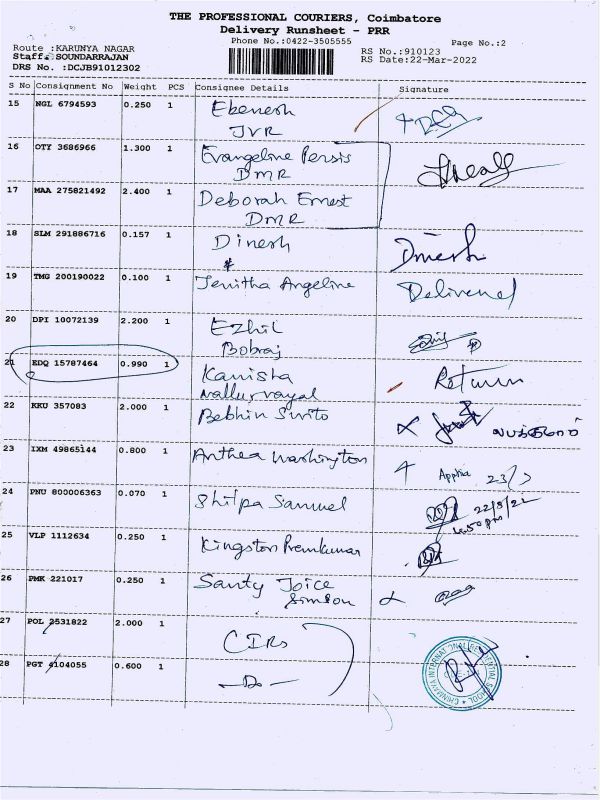 THE PROFESSIONAL COURIERS, Coimbatore
Delivery Runsheet - PRR
Phone No.:0422-3505555
Page No.:2
Route :KARUNYA NAGAR
Staff: SOUNDARRAJAN
DRS No. :DCJB91012302
RS No.:910123
RS Date:22-Mar-2022
S No Consignment No Weight PCS Consignee Details Signature
15 NGL 6794593 0.250 1 Ebenesh
JVR
16 OTY 3686966 1.300 1 Evangeline Persis
DMR
17 MAA 275821492 2.400 1 Deborah Ernest
DMR
18 SLM 291886716 0.157 1 Dinesh Dinesh
19 TMG 200190022 0.100 1 Jenitha Angeline Delivered
20 DPI 10072139 2.200 1 Ezhil
Bobraj
21 EDQ 15787464 0.990 1 Kanisha Return
Nallurvayal
22 KKU 357083 2.000 1 Bebhin Sinto
23 IXM 49865144 0.800 1 Anthea Washington
24 PNU 800006363 0.070 1 Shilpa Samuel 22/3/22
4.50pm
25 VLP 1112634 0.250 1 Kingston Premkumar
26 PMK 221017 0.250 1 Santy Joice
Simson
27 POL 2531822 2.000 1 CIRS
28 PGT 4104055 0.600 1 -Do-
CHINMAYA INTERNATIONAL RESIDENTIAL SCHOOL